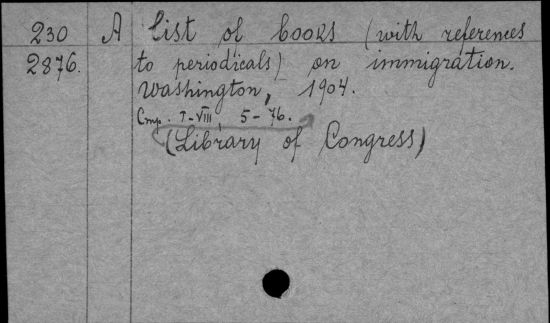 230 A List of books (with references
2876. to periodicals) on immigration.
Washington, 1904.
Стр. I-VIII 5-76.
(Library of Congress)